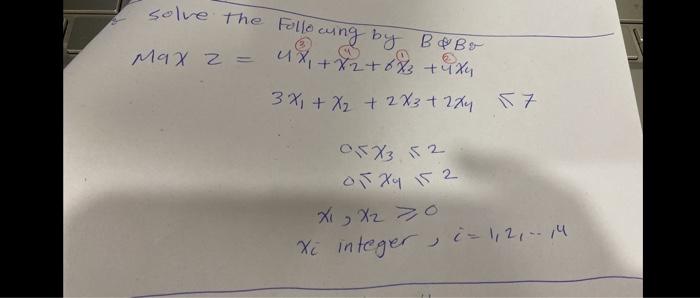 solve the Following by B&B
③ ④ ① ②
Max Z = 4x₁ + x₂ + 6x₃ + 4x₄
3x₁ + x₂ + 2x₃ + 2x₄ ≤ 7
0 ≤ x₃ ≤ 2
0 ≤ x₄ ≤ 2
x₁, x₂ ≥ 0
xᵢ integer, i = 1, 2, -- , 4